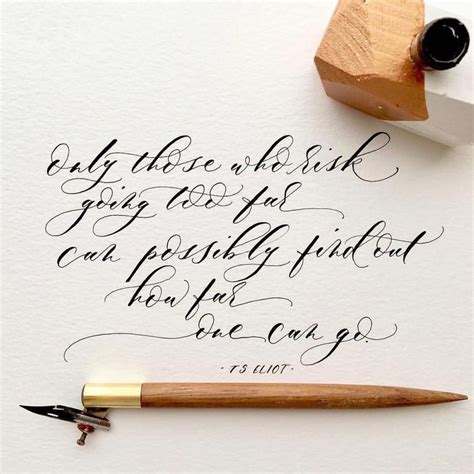 only those who risk
going too far
can possibly find out
how far
one can go.
· TS ELIOT ·